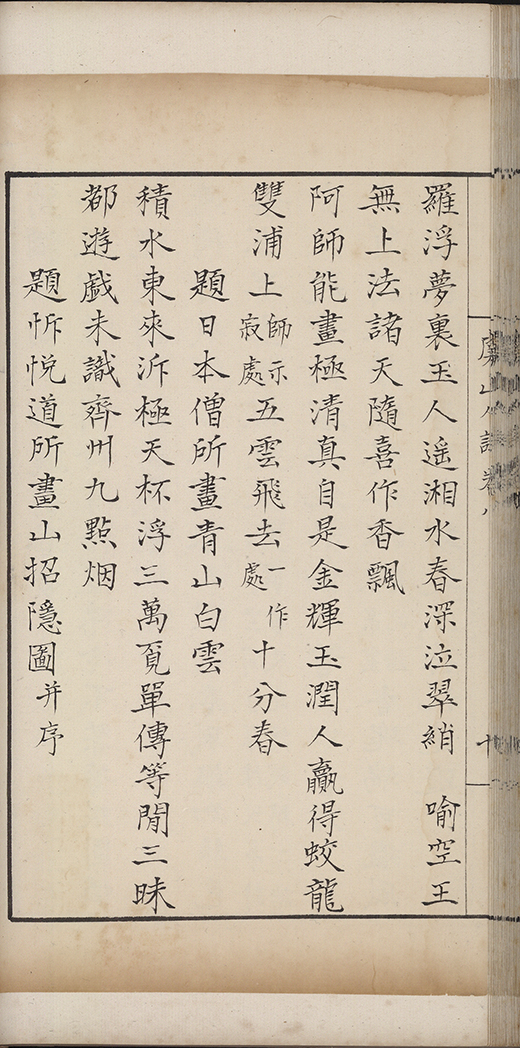 羅浮夢裏玉人遥湘水春深泣翠綃　喻空王
無上法諸天隨喜作香飄
阿師能畫極清真自是金輝玉潤人贏得蛟龍
雙浦上師示寂處五雲飛去一作處十分春
題日本僧所畫青山白雲
積水東來泝極天杯浮三萬覓單傳等閒三昧
都遊戲未識齊州九點烟
題忻悅道所畫山招隱圖并序
山人詩卷八
十